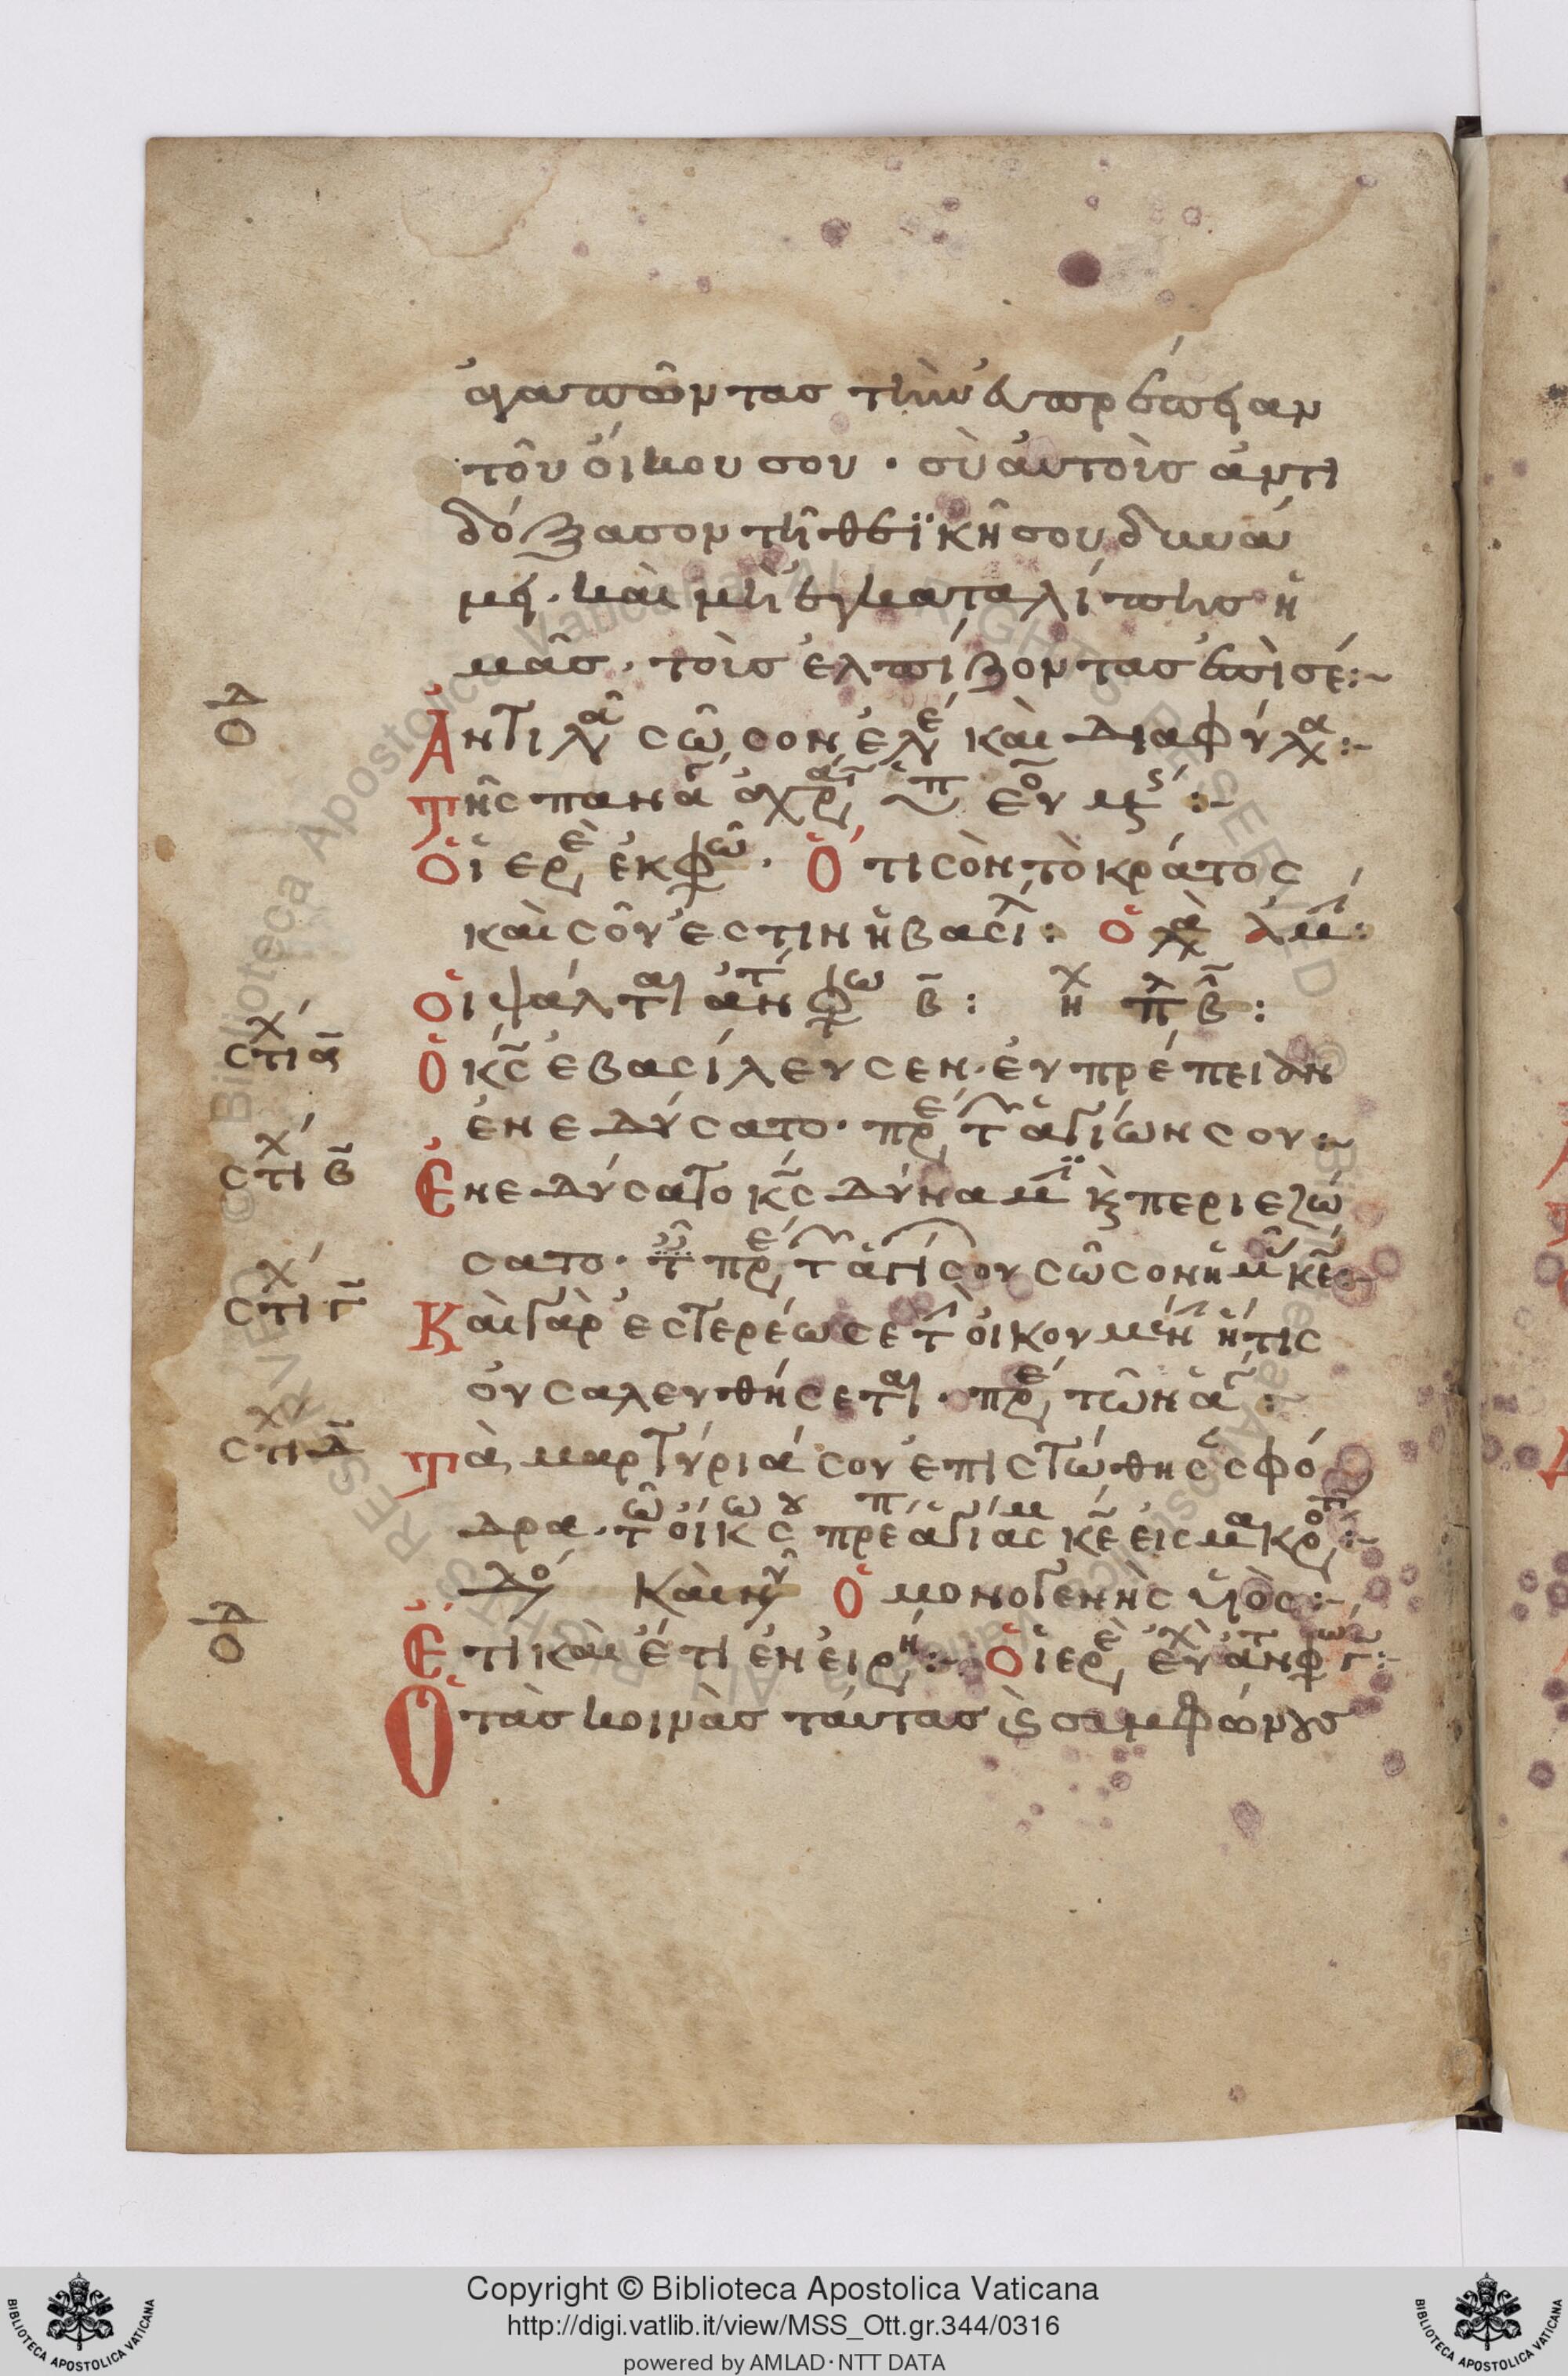 ἀγαπῶντας τὴν εὐπρέπειαν
τοῦ οἴκου σου · σὺ αὐτοὺς ἀντι
δόξασον τῆ θεϊκῆ σου δυνά
μει · καὶ μὴ ἐγκαταλίπης ἡ
μᾶς · τοὺς ἐλπίζοντας ἐπὶ σέ :~
Ἀντιλα σῶσον ἐλέ καὶ διαφύλα :~
Τῆς παναγ ἀχρα ὑπ εὐο μζ :~
Ὁ ἱερε ἐκφω · Ὅτι σὸν τὸ κράτος
καὶ σοῦ ἐστιν ἡ βασιλ : Ὁ λα ἀμ :
Οἱ ψάλται ἀντ φω β̄ : ηχ πλ β̄ :
στιχ ᾱ
Ὁ κς ἐβασίλευσεν · εὐπρέπειαν
ἐνεδύσατο · πρε τ ἁγίων σου :~
στιχ β̄
Ἐνεδύσατο κς δύναμι κ περιεζώ
σατο · τ πρε τ ἁγί σου σῶσον ἡμ κε :~
στιχ γ̄
Καὶ γὰρ ἐστερέωσε τ οἰκουμεν ἥτις
οὐ σαλευθήσεται · πρε τῶν ἁγ :
στιχ δ̄
Τὰ μαρτύριά σου ἐπιστώθης σφό
δρα · τῶ οἴκω σου πρέπ ἁγίασμ κε εἰς μακρο :~
Δο Καὶ νυ Ὁ μονογενὴς υἱὸς :~
Ἔτι καὶ ἔτι ἐν εἰρη :~ Ὁ ἱερε εὐχ ἀντφω γ̄ :~
Ὁ τὰς κοινὰς ταύτας κ συμφώνους
Copyright © Biblioteca Apostolica Vaticana
http://digi.vatlib.it/view/MSS_Ott.gr.344/0316
powered by AMLAD·NTT DATA
BIBLIOTECA APOSTOLICA VATICANA
BIBLIOTECA APOSTOLICA VATICANA